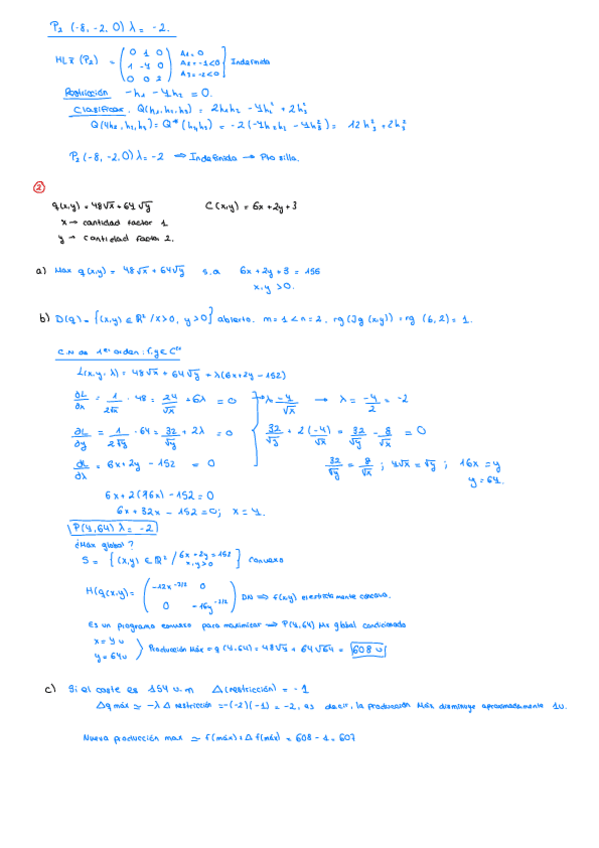 P₂ (-8, -2, 0) λ = -2.
HLx (P₂) = ( 0 1 0 / 1 -4 0 / 0 0 2 ) A₁ = 0 A₂ = -1 < 0 A₃ = -2 < 0 ] Indefinida
Restricción -h₁ - 4h₂ = 0.
Clasificar. Q(h₁, h₂, h₃) = 2h₁h₂ - 4h₂² + 2h₃²
P₂ (-8, -2, 0) λ = -2 ⇒ Indefinida → Pto silla.
②
q(x,y) = 48√x + 64√y C(x,y) = 6x + 2y + 3
x → cantidad factor 1.
y → cantidad factor 2.
a) Max q(x,y) = 48√x + 64√y s.a 6x + 2y + 3 = 155
x, y > 0.
b) D(q) = {(x,y) ∈ ℝ² / x > 0, y > 0} abierto. m = 1 < n = 2, rg (Jg (x,y)) = rg (6, 2) = 1.
C.N de 1er orden:
L(x,y,λ) = 48√x + 64√y + λ(6x + 2y - 152)
∂L/∂x = 1/2√x · 48 = 24/√x + 6λ = 0 λ = -4/√x → λ = -4/2 = -2
∂L/∂y = 1/2√y · 64 = 32/√y + 2λ = 0 32/√y + 2(-4)/√x = 32/√y - 8/√x = 0
∂L/∂λ = 6x + 2y - 152 = 0 32/√y = 8/√x ; 4√x = √y ; 16x = y
y = 64.
6x + 2(16x) - 152 = 0
6x + 32x - 152 = 0; x = 4.
P(4,64) λ = -2
¿Máx global?
S = { (x,y) ∈ ℝ² / 6x + 2y = 152 x, y > 0 } convexo
H(q(x,y)) = ( -12x^-3/2 0 / 0 -16y^-3/2 ) DN ⇒ f(x,y) estrictamente cóncava.
Es un programa convexo para maximizar ⇒ P(4,64) Mx global condicionado
x = 4u
y = 64u } Producción Máx = q(4,64) = 48√4 + 64√64 = 608 u
c) Si el coste es 154 u.m Δ(restricción) = -1
Δq máx ≃ -λ Δ restricción = -(-2)(-1) = -2, es decir, la producción Máx disminuye aproximadamente 1u.
Nueva producción max ≃ f(máx) + Δ f(máx) = 608 - 1 = 607